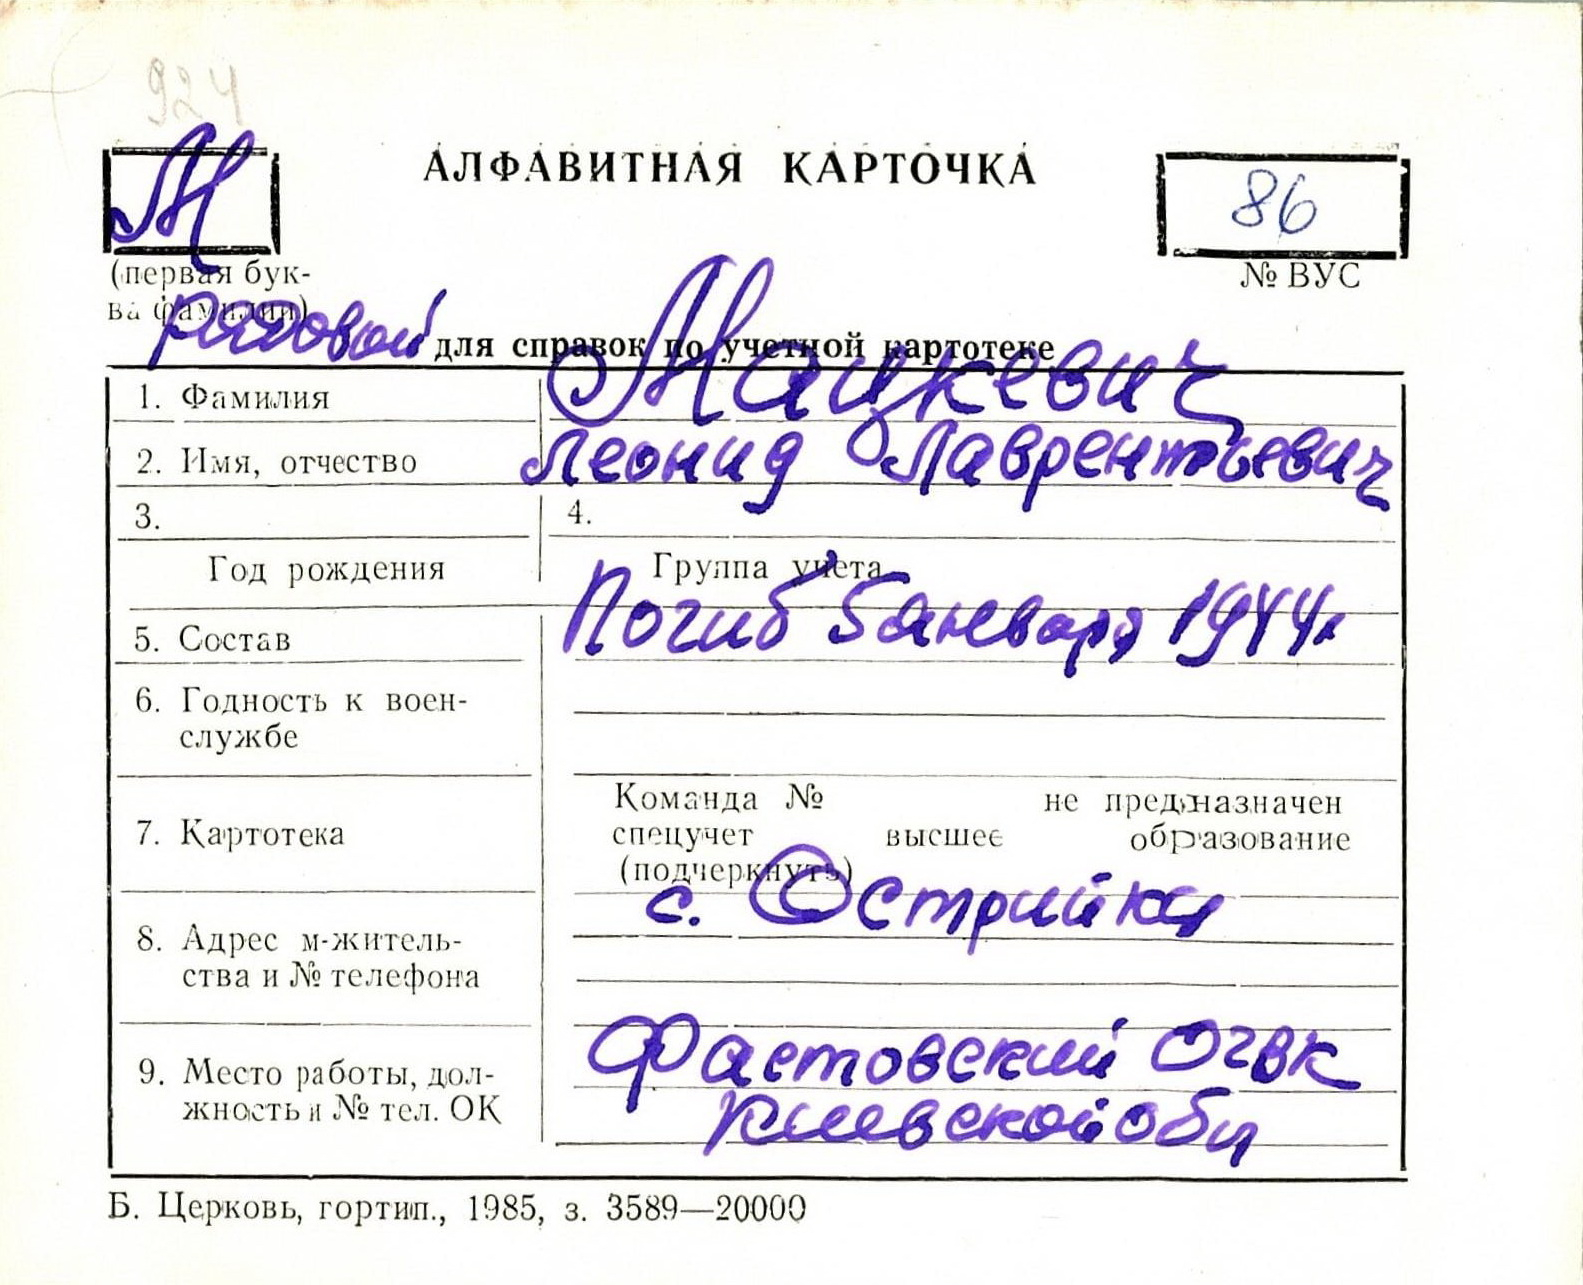 924
М
АЛФАВИТНАЯ КАРТОЧКА
86
(первая бук-
ва фамилии)
№ ВУС
рядовой
для справок по учетной картотеке
1. Фамилия Мацкевич
2. Имя, отчество Леонид Лаврентьевич
3. 4.
Год рождения Группа учета
5. Состав Погиб 5 января 1944г
6. Годность к воен-
службе
7. Картотека
Команда № не предназначен
спецучет высшее образование
(подчеркнуть)
с. Острийки
8. Адрес м-житель-
ства и № телефона
9. Место работы, дол-
жность и № тел. ОК
Фастовский ОГВК
Киевской обл
Б. Церковь, гортип., 1985, з. 3589—20000